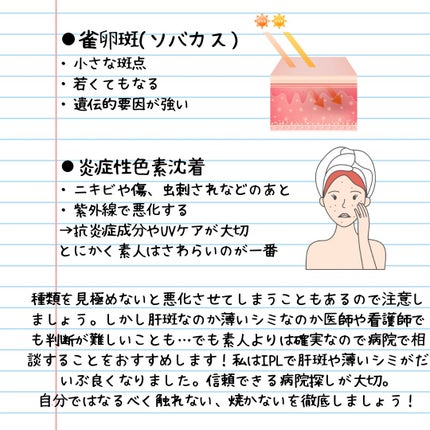 ●雀卵斑(ソバカス)
・小さな斑点
・若くてもなる
・遺伝的要因が強い
●炎症性色素沈着
・ニキビや傷、虫刺されなどのあと
・紫外線で悪化する
→抗炎症成分やUVケアが大切
とにかく素人はさわらいのが一番
種類を見極めないと悪化させてしまうこともあるので注意し
ましょう。しかし肝斑なのか薄いシミなのか医師や看護師で
も判断が難しいことも…でも素人よりは確実なので病院で相
談することをおすすめします！私はIPLで肝斑や薄いシミがだ
いぶ良くなりました。信頼できる病院探しが大切。
自分ではなるべく触れない、焼かないを徹底しましょう！